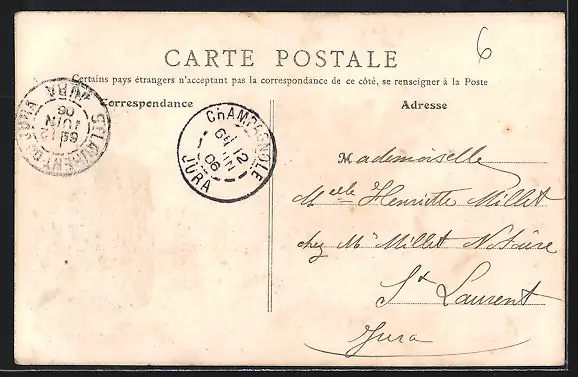 6
CARTE POSTALE
Certains pays étrangers n'acceptant pas la correspondance de ce côté, se renseigner à la Poste
Correspondance
Adresse
ST LAURENT DU JURA
JURA
12
JUIN
06
CHAMPAGNOLE
12
JUIN
06
JURA
Mademoiselle
Melle Henriette Millet
chez Mr Millet Notaire
St Laurent
Jura